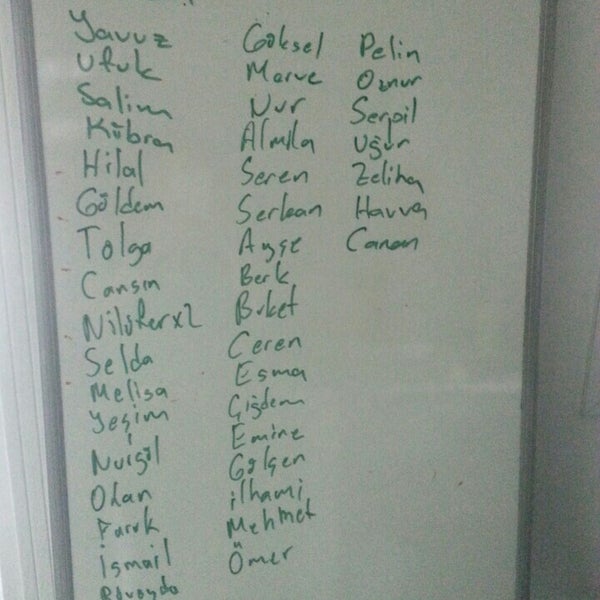 Yavuz
Ufuk
Salim
Kübra
Hilal
Güldem
Tolga
Cansın
Nilüfer x2
Selda
Melisa
Yeşim
Nurgül
Okan
Faruk
İsmail
Göksel
Merve
Nur
Almila
Seren
Serkan
Ayşe
Berk
Buket
Ceren
Esma
Çiğdem
Emine
Gülşen
ilhami
Mehmet
Ömer
Pelin
Oznur
Serpil
Uğur
Zeliha
Havva
Canan